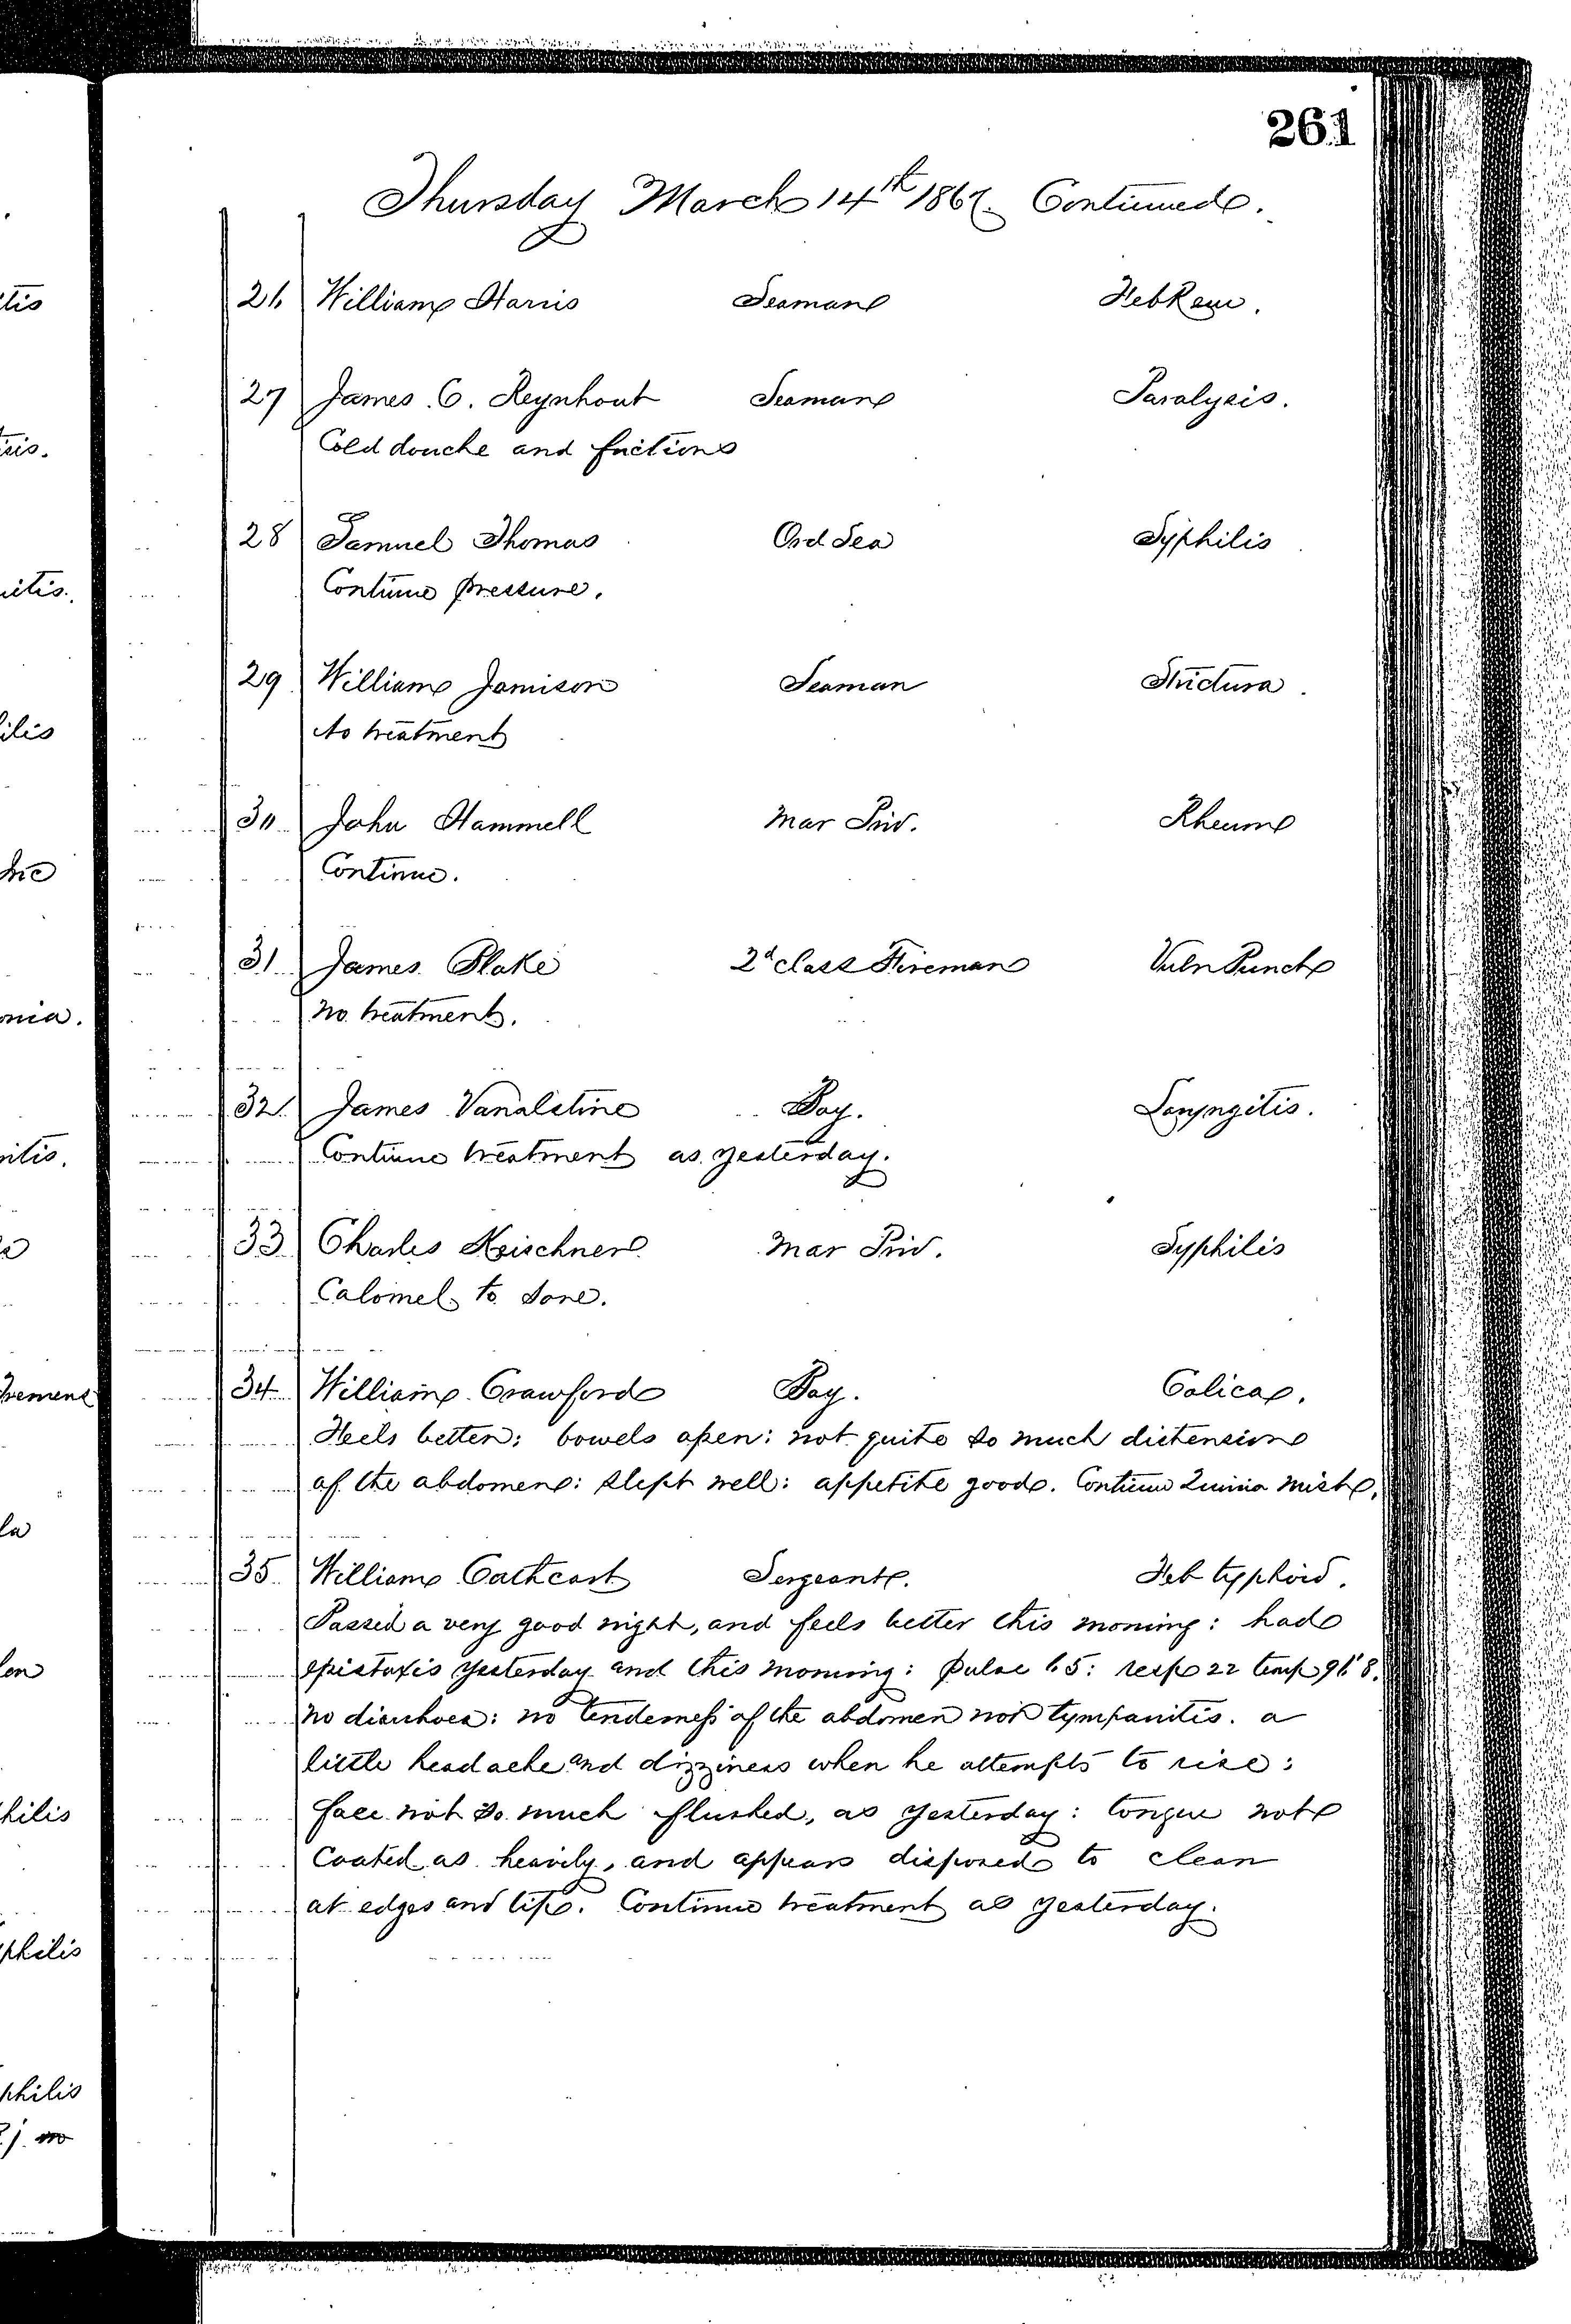 261
Thursday March 14th 1867. Continued.
26 William Harris Seaman Feb Rem.
27 James C. Reynhout Seaman Paralysis.
Cold douche and frictions
28 Samuel Thomas Ord Sea Syphilis
Continue pressure.
29 William Jamison Seaman Strictura.
No treatment
30 John Hammell Mar Priv. Rheum
Continue.
31 James Blake 2d class Fireman Vuln Punct
No treatment.
32 James Vanalstine Boy. Laryngitis.
Continue treatment as yesterday.
33 Charles Keischner Mar Priv. Syphilis
Calomel to sore.
34 William Crawford Boy. Colica.
Feels better: bowels open: not quite so much distension
of the abdomen: slept well: appetite good. Continue Quinia mist.
35 William Cathcart Sergeant. Feb typhoid.
Passed a very good night, and feels better this morning: had
epistaxis yesterday and this morning: pulse 65: resp 22 temp
no diarrhoea: no tenderness of the abdomen nor tympanitis. a
little headache and dizziness when he attempts to rise:
face not so much flushed, as yesterday: tongue not
coated as heavily, and appears disposed to clean
at edges and tip. Continue treatment as yesterday.